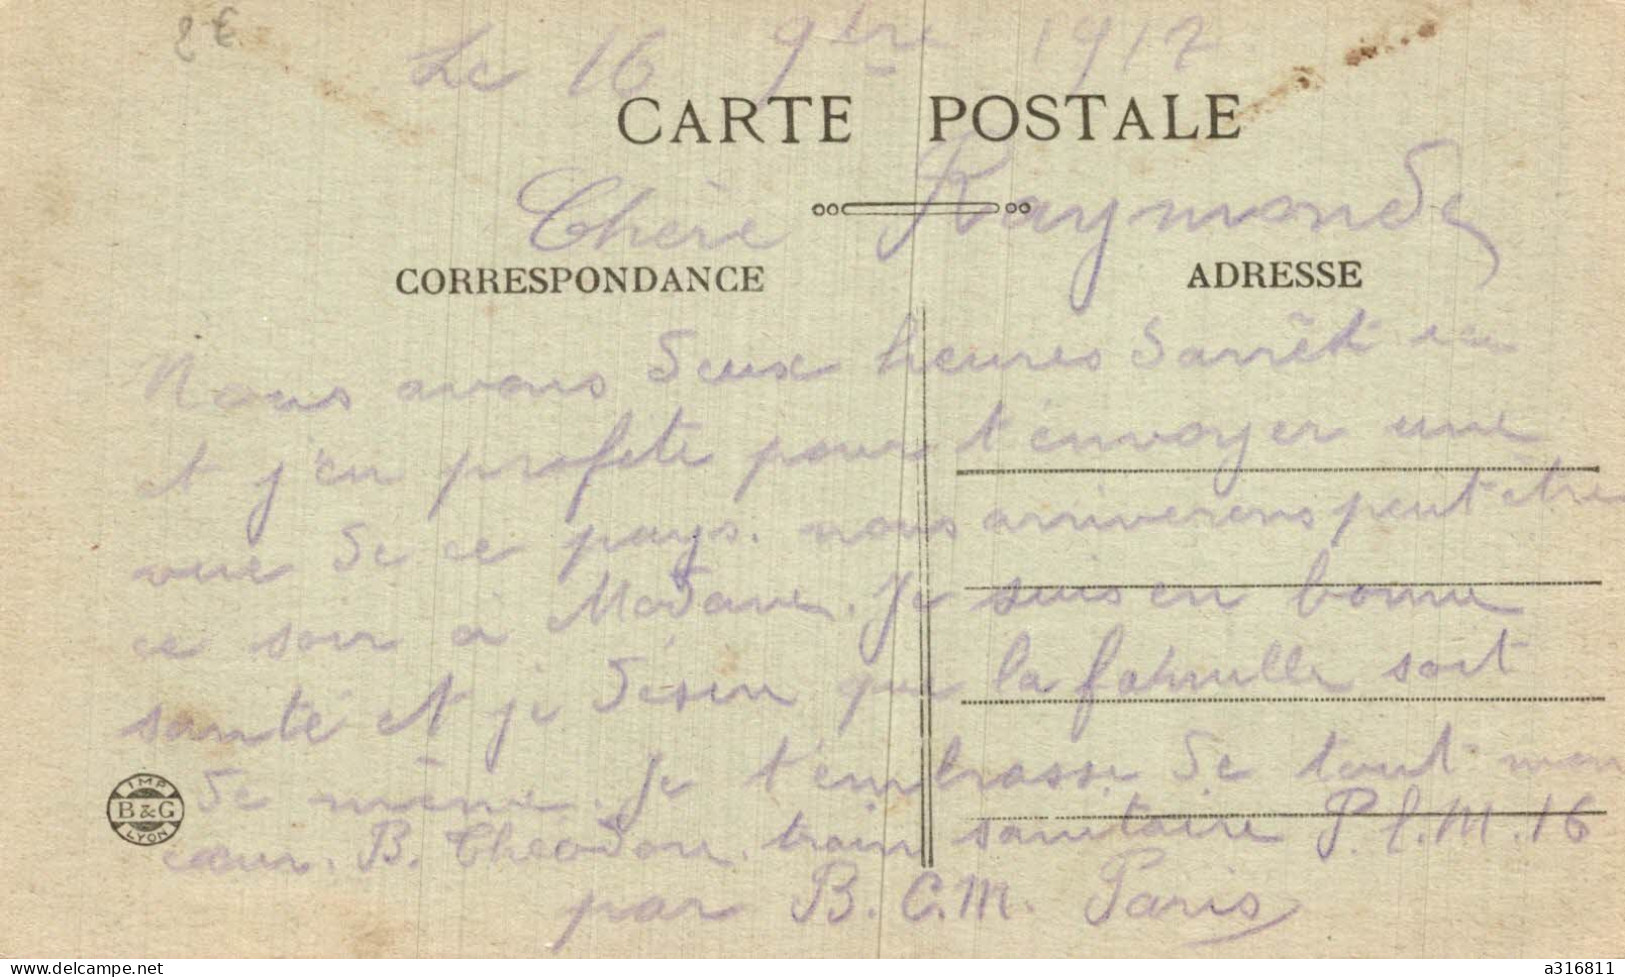 2€
Le 16 9bre 1917
CARTE POSTALE
Chère Raymonde
CORRESPONDANCE
ADRESSE
Nous avons deux heures darrêt ici
et j'en profite pour t'envoyer une
vue de ce pays. nous arriverons peut être
ce soir à Modane. Je suis en bonne
santé et je désire que la famille soit
de même. Je t'embrasse de tout mon
cœur. B. Théodore. train sanitaire P.L.M. 16
par B.C.M. Paris
IMP
B&G
LYON
https://www.delcampe.net
a316811